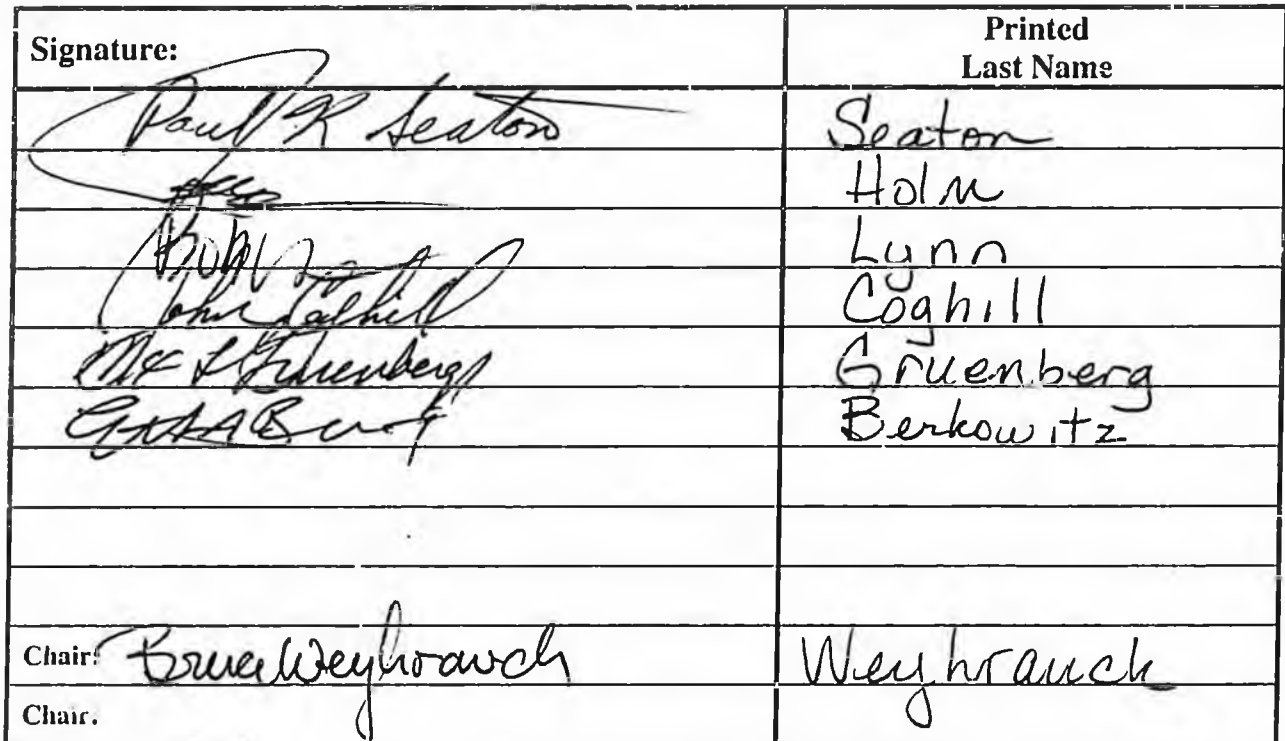 Signature: Printed Last Name
Paul R Seaton Seaton
Holm
Bob Lynn
John Coghill Coghill
Max F Gruenberg Gruenberg
Berkowitz
Chair: Bruce Weyhrauch Weyhrauch
Chair.